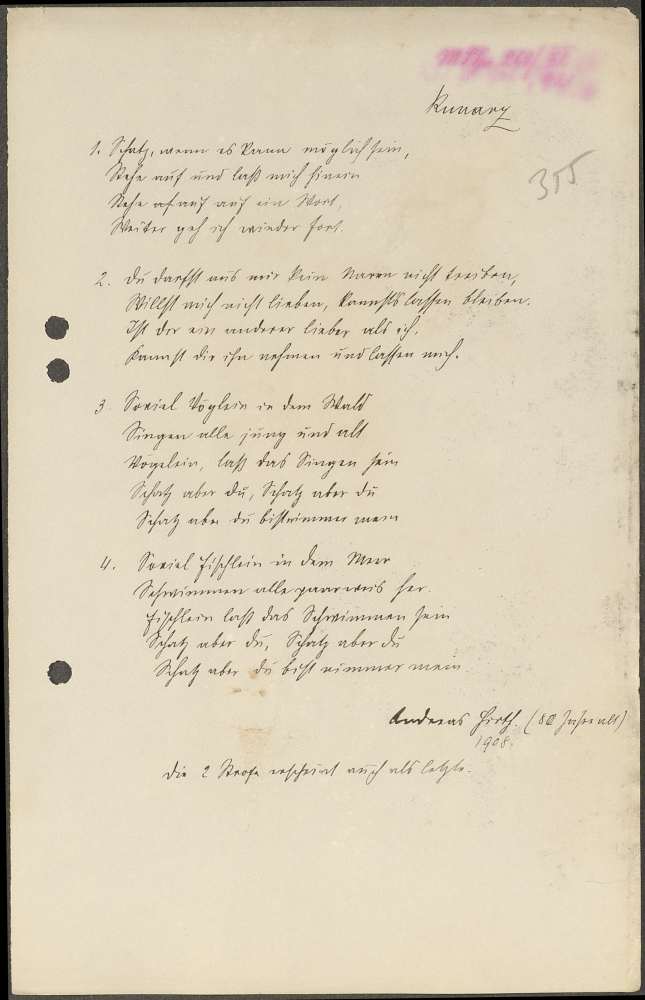 Kunary
355
1. Schatz, wenn es kann möglich sein,
Stehe auf und laß mich hinein
Stehe afauf auf ein Wort,
Weiter geh ich wieder fort.
2. Du darfst aus mir kein Narren nicht treiben,
Willst mich nicht lieben, kannsts lassen bleiben.
Ist dir ein anderer lieber als ich,
Kannst dir ihn nehmen und lassen mich.
3. Soviel Vöglein in dem Wald
Singen alle jung und alt
Vögelein, laß das Singen sein
Schatz aber du, Schatz aber du
Schatz aber du bist nimmer mein
4. Soviel Fischlein in dem Meer
Schwimmen alle paarweis her.
Fischlein laß das Schwimmen sein
Schatz aber du, Schatz aber du
Schatz aber du bist nimmer mein
Andreas Hirth. (80 Jahre alt)
1908.
Die 2 Strofe erscheint auch als letzte.